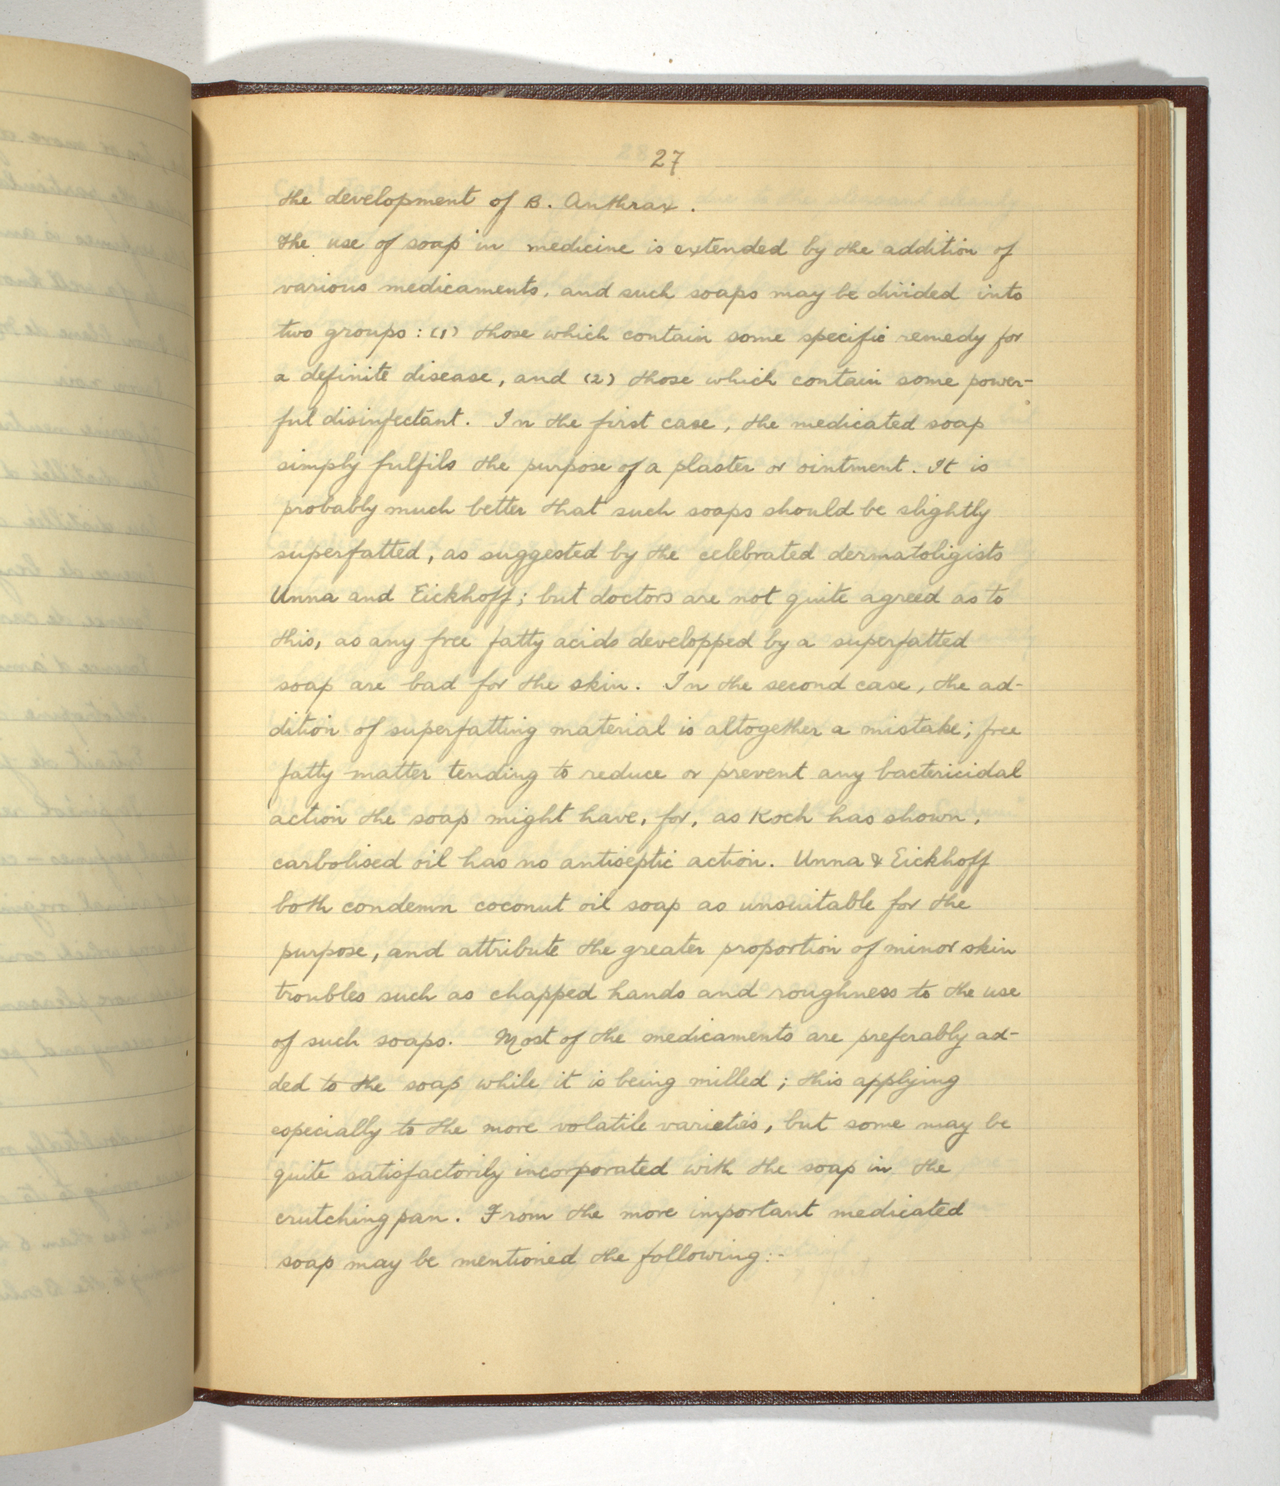 27
the development of B. Anthrax.
The use of soap in medicine is extended by the addition of
various medicaments, and such soaps may be divided into
two groups: (1) those which contain some specific remedy for
a definite disease, and (2) those which contain some power-
ful disinfectant. In the first case, the medicated soap
simply fulfils the purpose of a plaster or ointment. It is
probably much better that such soaps should be slightly
superfatted, as suggested by the celebrated dermatoligists
Unna and Eickhoff; but doctors are not quite agreed as to
this, as any free fatty acids developped by a superfatted
soap are bad for the skin. In the second case, the ad-
dition of superfatting material is altogether a mistake; free
fatty matter tending to reduce or prevent any bactericidal
action the soap might have, for, as Koch has shown,
carbolised oil has no antiseptic action. Unna & Eickhoff
both condemn coconut oil soap as unsuitable for the
purpose, and attribute the greater proportion of minor skin
troubles such as chapped hands and roughness to the use
of such soaps. Most of the medicaments are preferably ad-
ded to the soap while it is being milled; this applying
especially to the more volatile varieties, but some may be
quite satisfactorily incorporated with the soap in the
crutching pan. From the more important medicated
soap may be mentioned the following:-